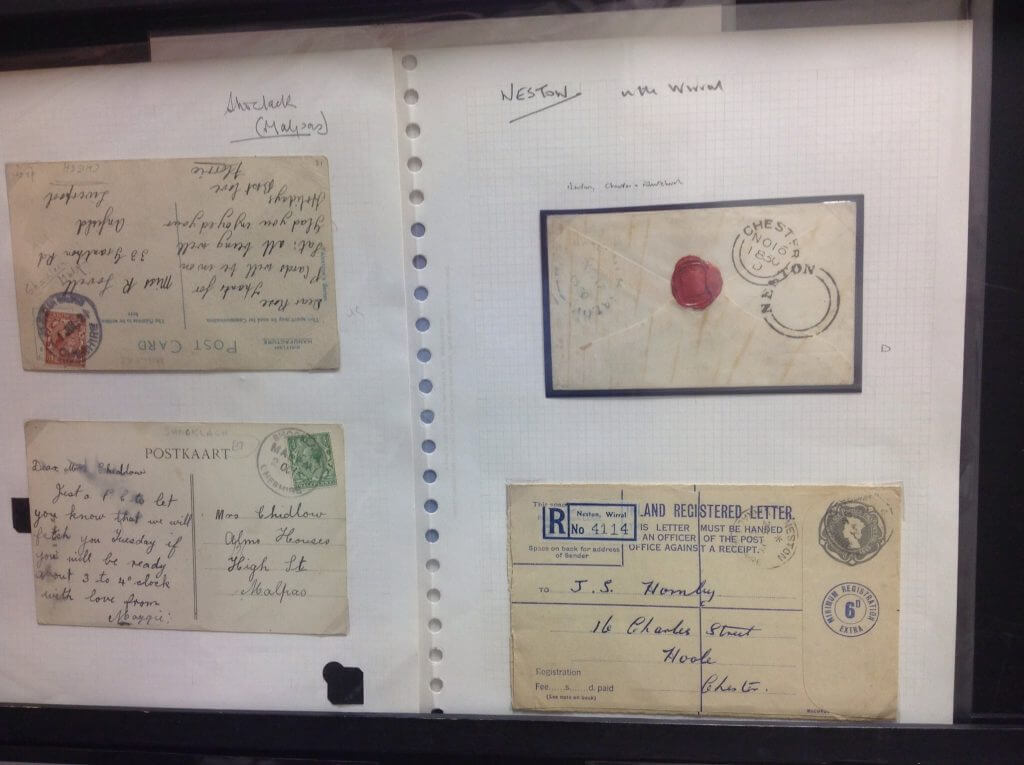 Shoclach
(Malpas)
CHESH
Liverpool
Anfield
33 Grantham Rd
Miss R
Florrie
Best love
Holidays
Glad you enjoyed your
Sat: all being well
P cards will be in on
Thanks for
Dear Rose
The Address to be written here
This space may be used for Communication.
POST CARD
BRITISH
MANUFACTURE
CHESHIRE
SHOCKLACH
POSTKAART
SHOC
MA
CHESHIRE
Dear Mrs Chidlow
Just a P C to let
you know that we will
fetch you Tuesday if
you will be ready
about 3 to 4 o'clock
with love from
Maggie.
Mrs Chidlow
Alms Houses
High St
Malpas
NESTON
Wirral
CHESTER
NO 16
1850
D
NESTON
D
This spa
LAND REGISTERED LETTER.
R
Neston, Wirral
No 4114
IS LETTER MUST BE HANDED
AN OFFICER OF THE POST
OFFICE AGAINST A RECEIPT.
Space on back for address
of Sender
NESTON
TO J. S. Hornby
16 Charles Street
Hoole
Chester.
MINIMUM REGISTRATION
6D
EXTRA
Registration
Fee......s......d. paid
(See note on back)